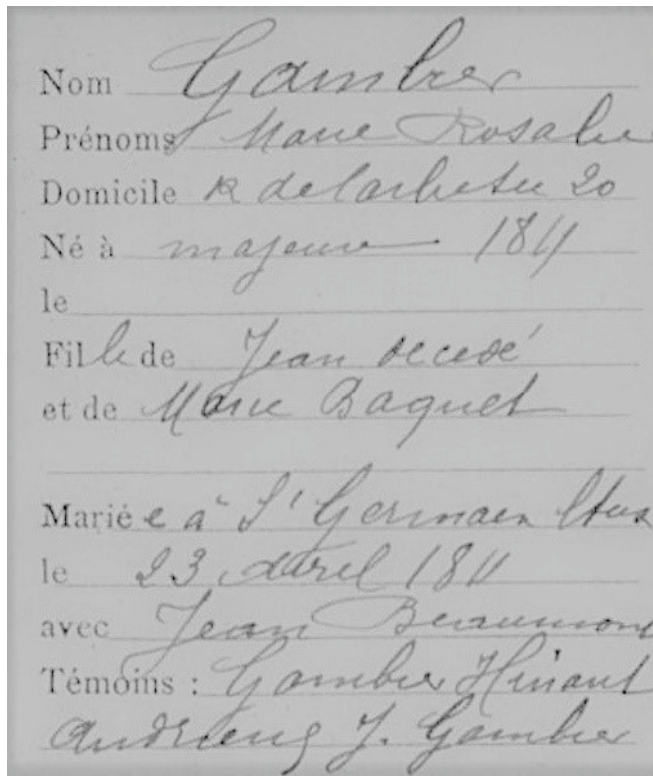 Nom Gambier
Prénoms Marie Rosalie
Domicile R de 20
Né à majeure 1811
le
Fille de Jean décédé
et de Marie Baquet
Mariée à St Germain
le 23 avril 1811
avec Jean Beaumont
Témoins : Gambier Hinaut
J. Gambier